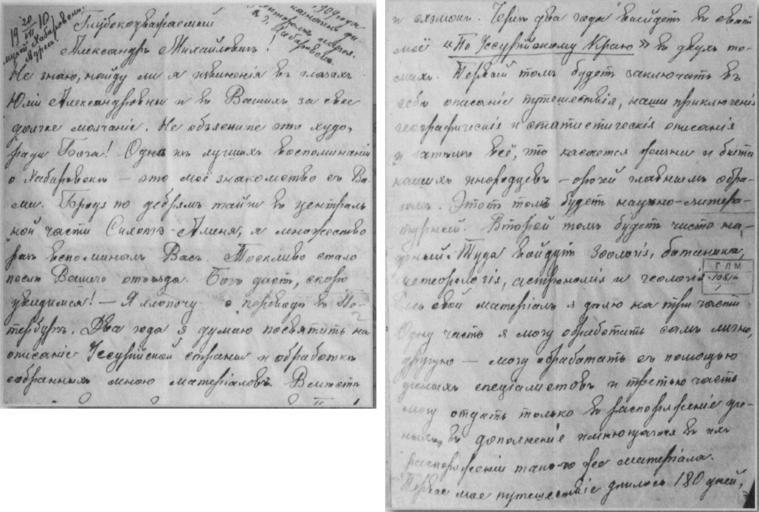 19 20/XII 10
Глубокоуважаемый
Александръ Михайловичъ!
Не знаю, найду ли я извиненія въ глазахъ
Юліи Александровны и въ Вашихъ за свое
долгое молчаніе. Не объясните это худо,
ради Бога! Одно изъ лучшихъ воспоминаній
о Хабаровскѣ – это моё знакомство съ Ва-
ми. Бродя по дебрямъ тайги въ централь-
ной части Сихотэ-Алиня, я множество
разъ вспоминалъ Васъ. Тоскливо стало
послѣ Вашего отъѣзда. Богъ дастъ, скоро
увидимся! – Я хлопочу о переводѣ въ Пе-
тербургъ. Два года я думаю посвятить на
описаніе Уссурійской страны и обработкѣ
собранныхъ мною матеріаловъ
Черезъ два года выйдетъ въ свѣтъ
моё «По Уссурійскому Краю» въ двухъ то-
махъ. Первый томъ будетъ заключать въ
себѣ описаніе путешествія, наши приключенія
географическія и статистическія описанія
и затѣмъ всё, что касается жизни и быта
нашихъ инородцевъ – орочей главнымъ обра-
зомъ. Этотъ томъ будетъ научно-литера-
турный. Второй томъ будетъ чисто на-
учный. Туда войдутъ зоологія, ботаника,
метеорологія, астрономія и геологія
ГЛМ
Весь свой матеріалъ я дѣлю на три части
Одну часть я могу обработать самъ лично,
другую – могу обработать съ помощью
ученыхъ спеціалистовъ и третью часть
могу отдать только въ распоряженіе уче-
ныхъ, въ дополненіе имѣющагося въ ихъ
распоряженіи такого же матеріала.
Первое мое путешествіе длилось 180 дней,